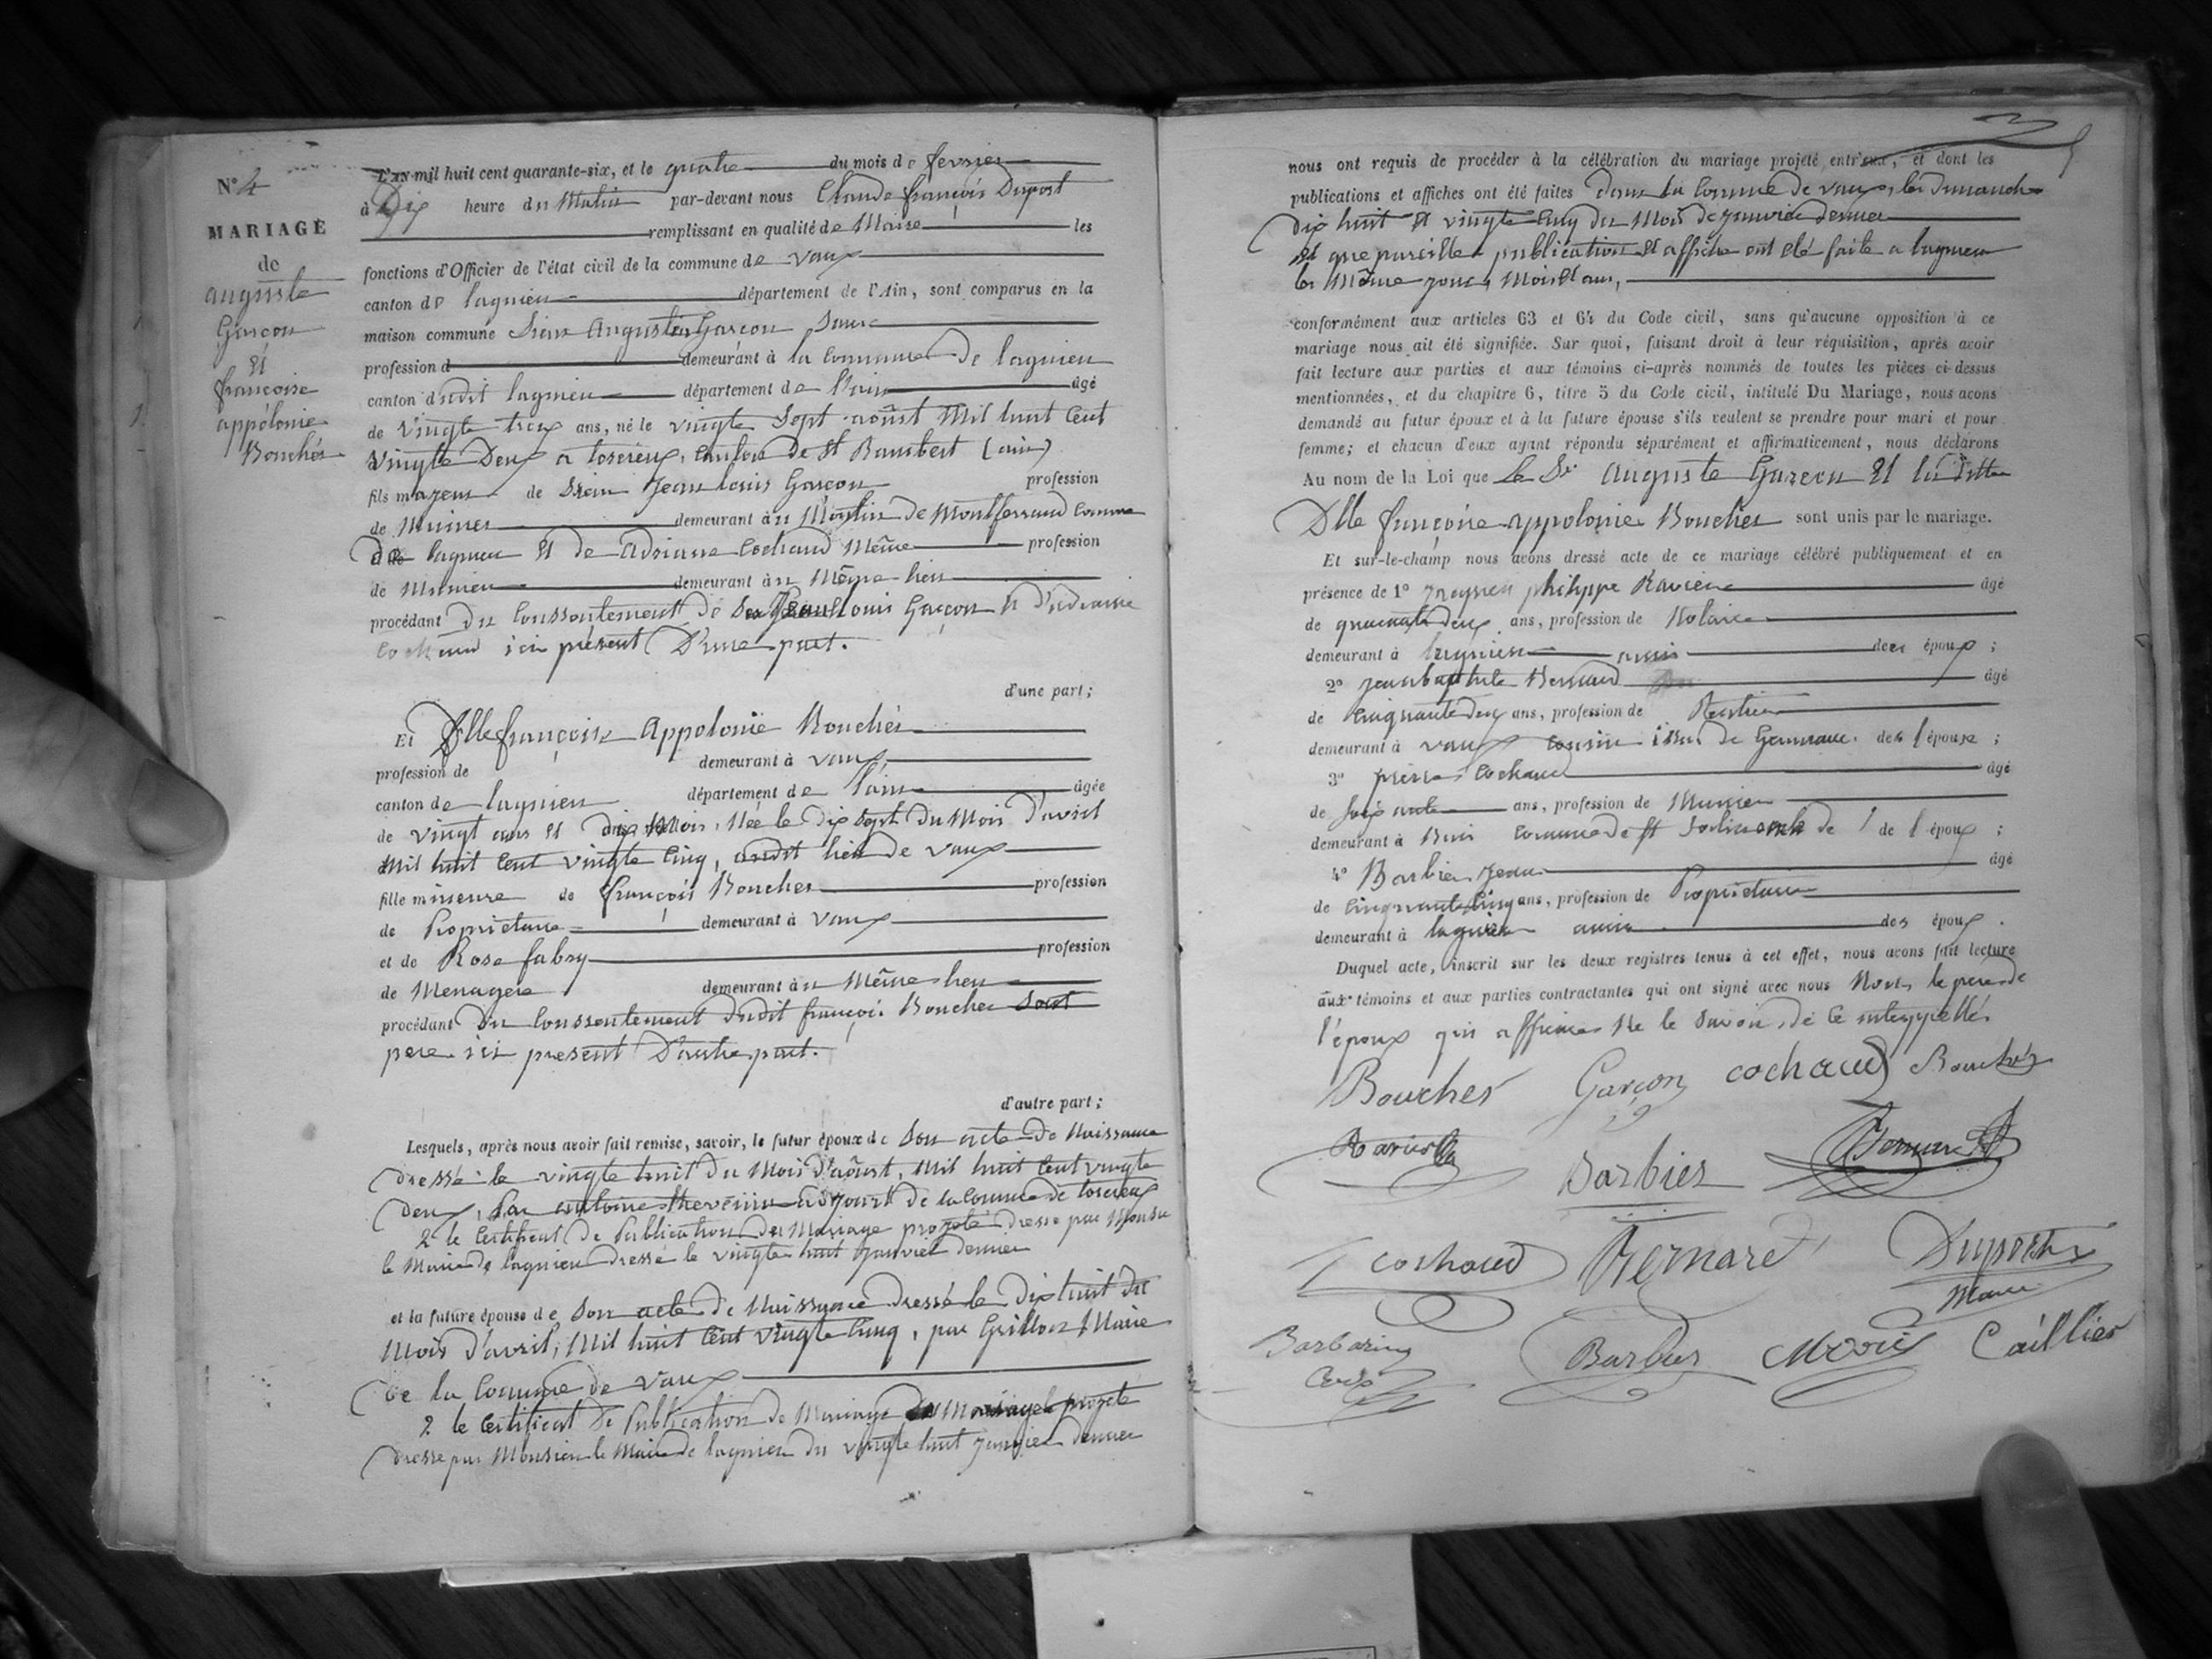 N° 4
MARIAGE
de
auguste
Garcon
Et
françoise
appolonie
Bouchér
L'an mil huit cent quarante-six, et le quatre du mois de fevrier
à Dix heure du Matin par-devant nous Claude françois Duport
remplissant en qualité de Maire les
fonctions d'Officier de l'état civil de la commune de vaux
canton de lagnieu département de l'Ain, sont comparus en la
maison commune Sieur Auguste Garcon
profession d demeurant à la Commune de lagnieu
canton dudit lagnieu département de l'ain âgé
de Vingte trois ans, né le vingte Sept août Mil huit Cent
Vingte Deux a torcieux, Canton de St Rambert (ain)
fils majeur de Sieur Jean louis Garcon profession
de Munier demeurant au Moulin de Montferrand Comme
de lagnieu Et de Adrianne Cochaud Même profession
de Munier demeurant au Même lieu
procédant Du Conssentement de Jean louis Garcon Et d'adrianne
Cochaud ici présent D'une part.
d'une part;
Et Dlle françoise Appolonie Bouchér
profession de demeurant à vaux
canton de lagnieu département de l'ain âgée
de vingt ans Et dix Mois, Née le Dix Sept Du Mois D'avril
Mil huit Cent vingte Cinq, audit lieu de vaux
fille mineure de françois Boucher profession
de Propriétaire demeurant à vaux
et de Rose fabry profession
de Menagere demeurant au Même lieu
procédant Du Conssentement Dudit françois Boucher
pere ici present D'autre part.
d'autre part;
Lesquels, après nous avoir fait remise, savoir, le futur époux de Son acte De Naissance
Dressé le vingte huit Du Mois D'août, Mil huit Cent vingte
Deux, Par antoine thevenin adjoint de la Comme de torcieux
2 le Certificat De Publication du Mariage projeté Dressé par Monsr
le Maire de lagnieu Dressé le vingte huit Janvier Dernier
et la future épouse de Son acte De Naissance Dressé le Dix huit Du
Mois D'avril, Mil huit Cent Vingte Cinq, par Grillon Maire
De la Commune de Vaux
2 le Certificat De Publication de Mariage projeté
Dresse par Monsieur le Maire de lagnieu Du vingte huit Janvier Dernier
nous ont requis de procéder à la célébration du mariage projeté entr'eux, et dont les
publications et affiches ont été faites Dans la Commune de vaux les Dimanche
Dix huit Et vingte Cinq Du Mois De Janvier Dernier
Et que pareille publication Et affiche ont été faite a lagnieu
les Même jour, Mois Et an,
conformément aux articles 63 et 64 du Code civil, sans qu'aucune opposition à ce
mariage nous ait été signifiée. Sur quoi, faisant droit à leur réquisition, après avoir
fait lecture aux parties et aux témoins ci-après nommés de toutes les pièces ci-dessus
mentionnées, et du chapitre 6, titre 5 du Code civil, intitulé Du Mariage, nous avons
demandé au futur époux et à la future épouse s'ils veulent se prendre pour mari et pour
femme; et chacun d'eux ayant répondu séparément et affirmativement, nous déclarons
Au nom de la Loi que Le Sr Auguste Garcon Et la ditte
Dlle françoise appolonie Boucher sont unis par le mariage.
Et sur-le-champ nous avons dressé acte de ce mariage célébré publiquement et en
présence de 1° philippe âgé
de quarante deux ans, profession de Notaire
demeurant à lagnieu amis des époux ;
2° jean baptiste Bernard âgé
de Cinquante deux ans, profession de Rentier
demeurant à vaux Cousin issu de Germain de l'épouse ;
3° pierre Cochaud âgé
de Soixante ans, profession de Munier
demeurant à Commune de St de l'époux ;
4° Barbier Jean âgé
de Cinquante Cinq ans, profession de Propriétaire
demeurant à lagnieu amis des époux.
Duquel acte, inscrit sur les deux registres tenus à cet effet, nous avons fait lecture
aux témoins et aux parties contractantes qui ont signé avec nous Non le pere de
l'époux qui a affirmé Ne le Savoir De Ce interppellé.
Bouchér Garçon cochaud Bouchér
Barbier Bernard
cochaud Bernard Duport
Maire
Barbarin
Curé Barbier Caillier